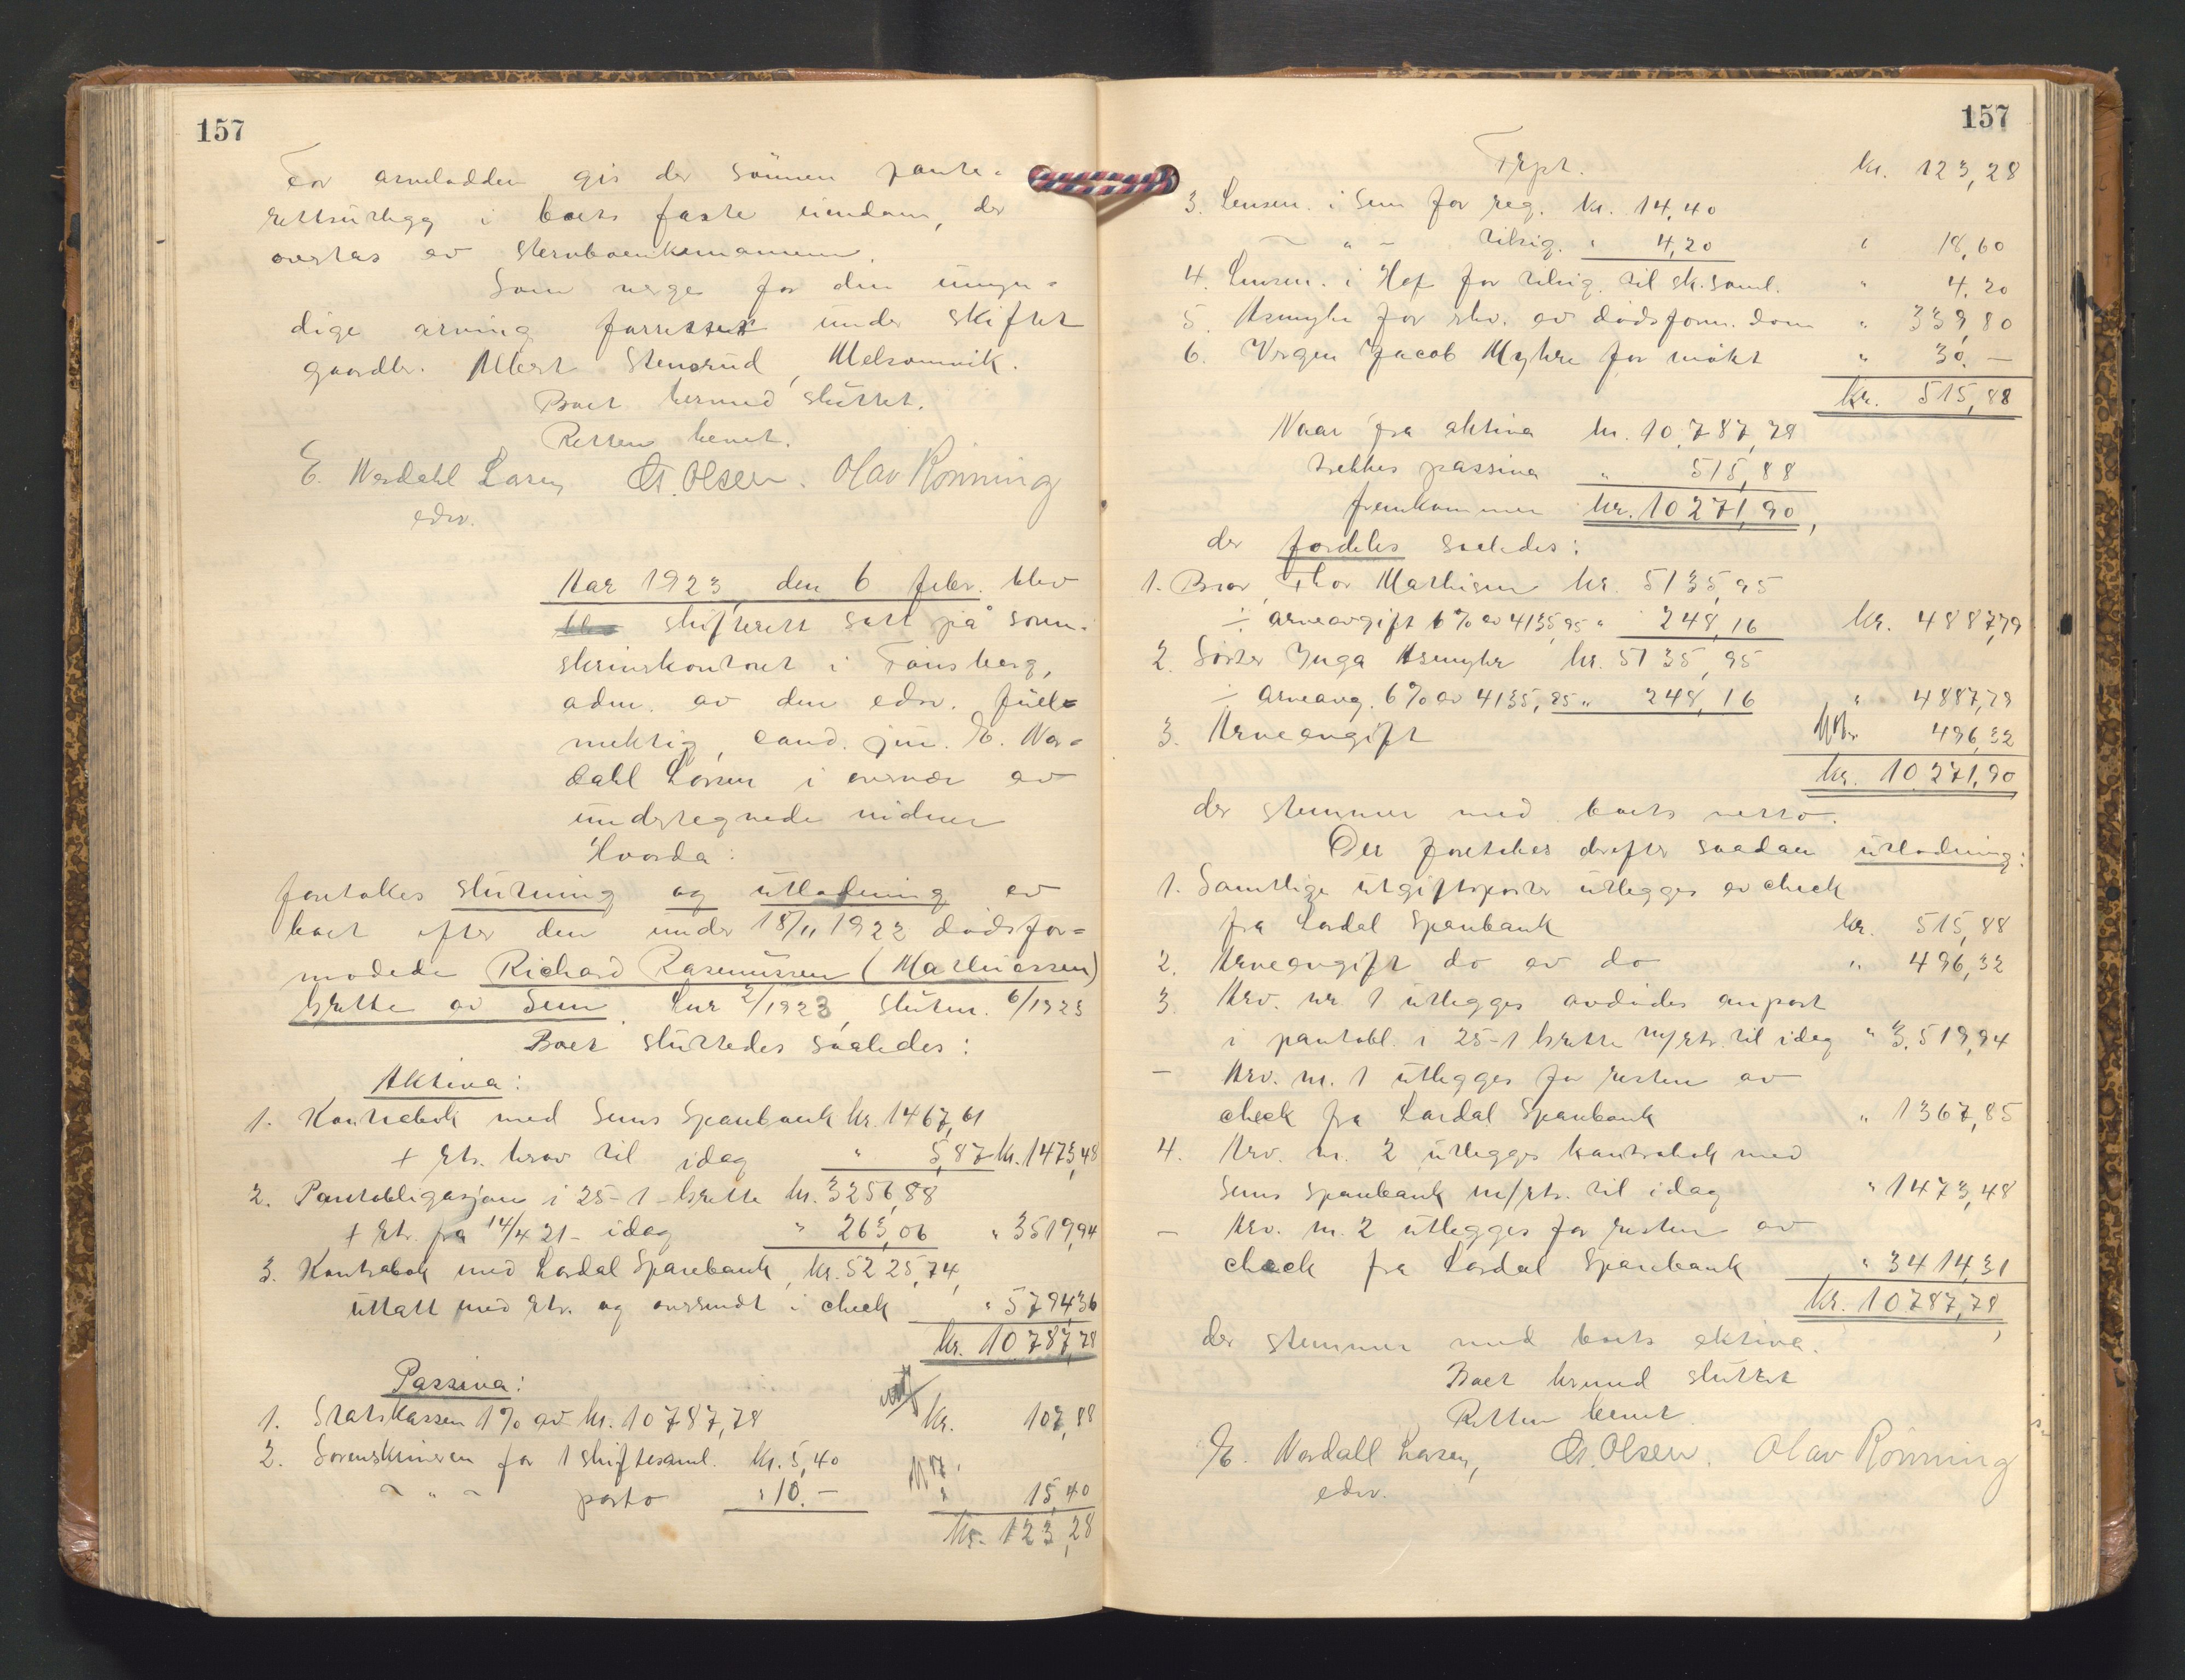 157
For arvelodden gis der sönnen pante-
rettsutlegg i boets faste eiendom, der
overtas av stervboenkemannen.
Som verge for den umyn-
dige arving forretter under skiftet
gaardbr. Albert Stensrud, Melsomvik.
Boet hermed sluttet.
Retten hevet.
E. Nordahl Larsen, Chr. Olsen. Olav Rönning
edsv.
Aar 1923 den 6 febr. blev
skifterett satt på soren-
skriverkontoret i Tönsberg,
adm. av den edsv. full-
mektig, cand. jur. E. Nor-
dahl Larsen i overvær av
undertegnede vidner
Hvorda:
foretokes slutning og utlodning av
boet efter den under 18/11 1922 dödsfor-
modede Richard Rasmussen (Mathiassen)
Bjette av Sem. Lnr 2/1923, slutn. 6/1923
Boet sluttedes således:
Aktiva:
1. Kontrabok med Sems Sparebank kr. 1467,61
+ rtr. herav til idag " 5,87 kr. 1473,48
2. Pantobligasjon i 25-1 Bjette kr. 3256,88
+ rtr. fra 14/4 21 - idag " 263,06 " 3519,94
3. Kontrabok med Lardal Sparebank, kr. 5225,74,
uttatt med rtr. og oversendt i check " 5794,36
kr. 10 787,78
Passiva:
1. Statskassen 1% av kr. 10787,78 kr. 107,88
2. Sorenskriveren for 1 skiftesaml. kr. 5,40
~ " ~ porto " 10.- " 15,40
kr. 123,28
157
Trpt. kr. 123,28
3. Lensm. i Sem for reg. kr. 14,40
~ " - tilsig. " 4,20 " 18,60
4. Lensm. i Hof for tilsig. til sk.saml. " 4,20
5. Asmyhr for erhv. av dödsform. dom " 339,80
6. Vergen Jacob Myhre for mökt " 30.-
kr. 515,88
Naar fra aktiva kr. 10.787,78
trekkes passiva " 515,88
fremkommer kr. 10271,90,
der fordeles saaledes:
1. Bror, Thor Mathisen kr. 5135,95
÷ arveavgift 6% av 4135,95 " 248,16 kr. 4887,79
2. Söster Inga Asmyhr kr. 5135,95
÷ arveavg. 6% av 4135,95 " 248,16 " 4887,79
3. Arveavgift 496,32
kr. 10,271,90
der stemmer med boets netto.
Der foretokes derefter saadan utlodning:
1. Samtlige utgiftsposter utlegges av check
fra Lardal Sparebank kr. 515,88
2. Arveavgift do av do " 496,32
3. Arv. nr 1 utlegges avdödes anpart
i pantobl. i 25-1 Bjette m/rtr. til idag " 3,519,94
- Arv. nr. 1 utlegges for resten av
check fra Lardal Sparebank " 1367,85
4. Arv. nr. 2 utlegges kontrabok med
Sems Sparebank m/rtr. til idag " 1473,48
- Arv. nr. 2 utlegges for resten av
check fra Lardal Sparebank " 3414,31
kr. 10787,78,
der stemmer med boets aktiva.
Boet hermed sluttet
Retten hevet.
E. Nordahl Larsen, Chr. Olsen. Olav Rönning
edsv.